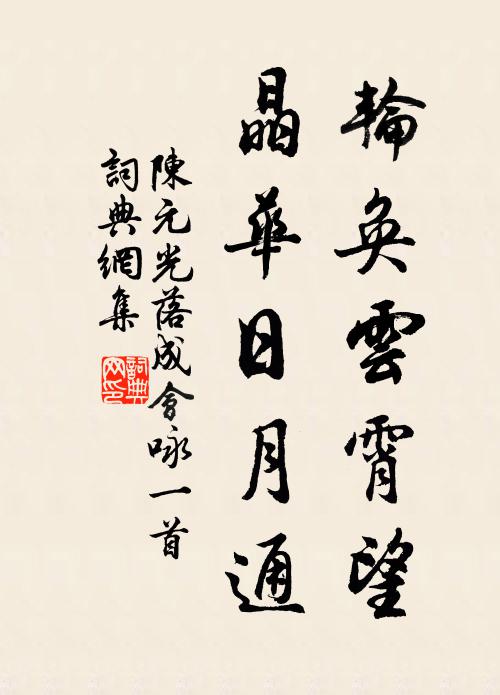 輪奐雲霄望
晶華日月通
陳元光落成會咏一首
詞典網集
詞典網印